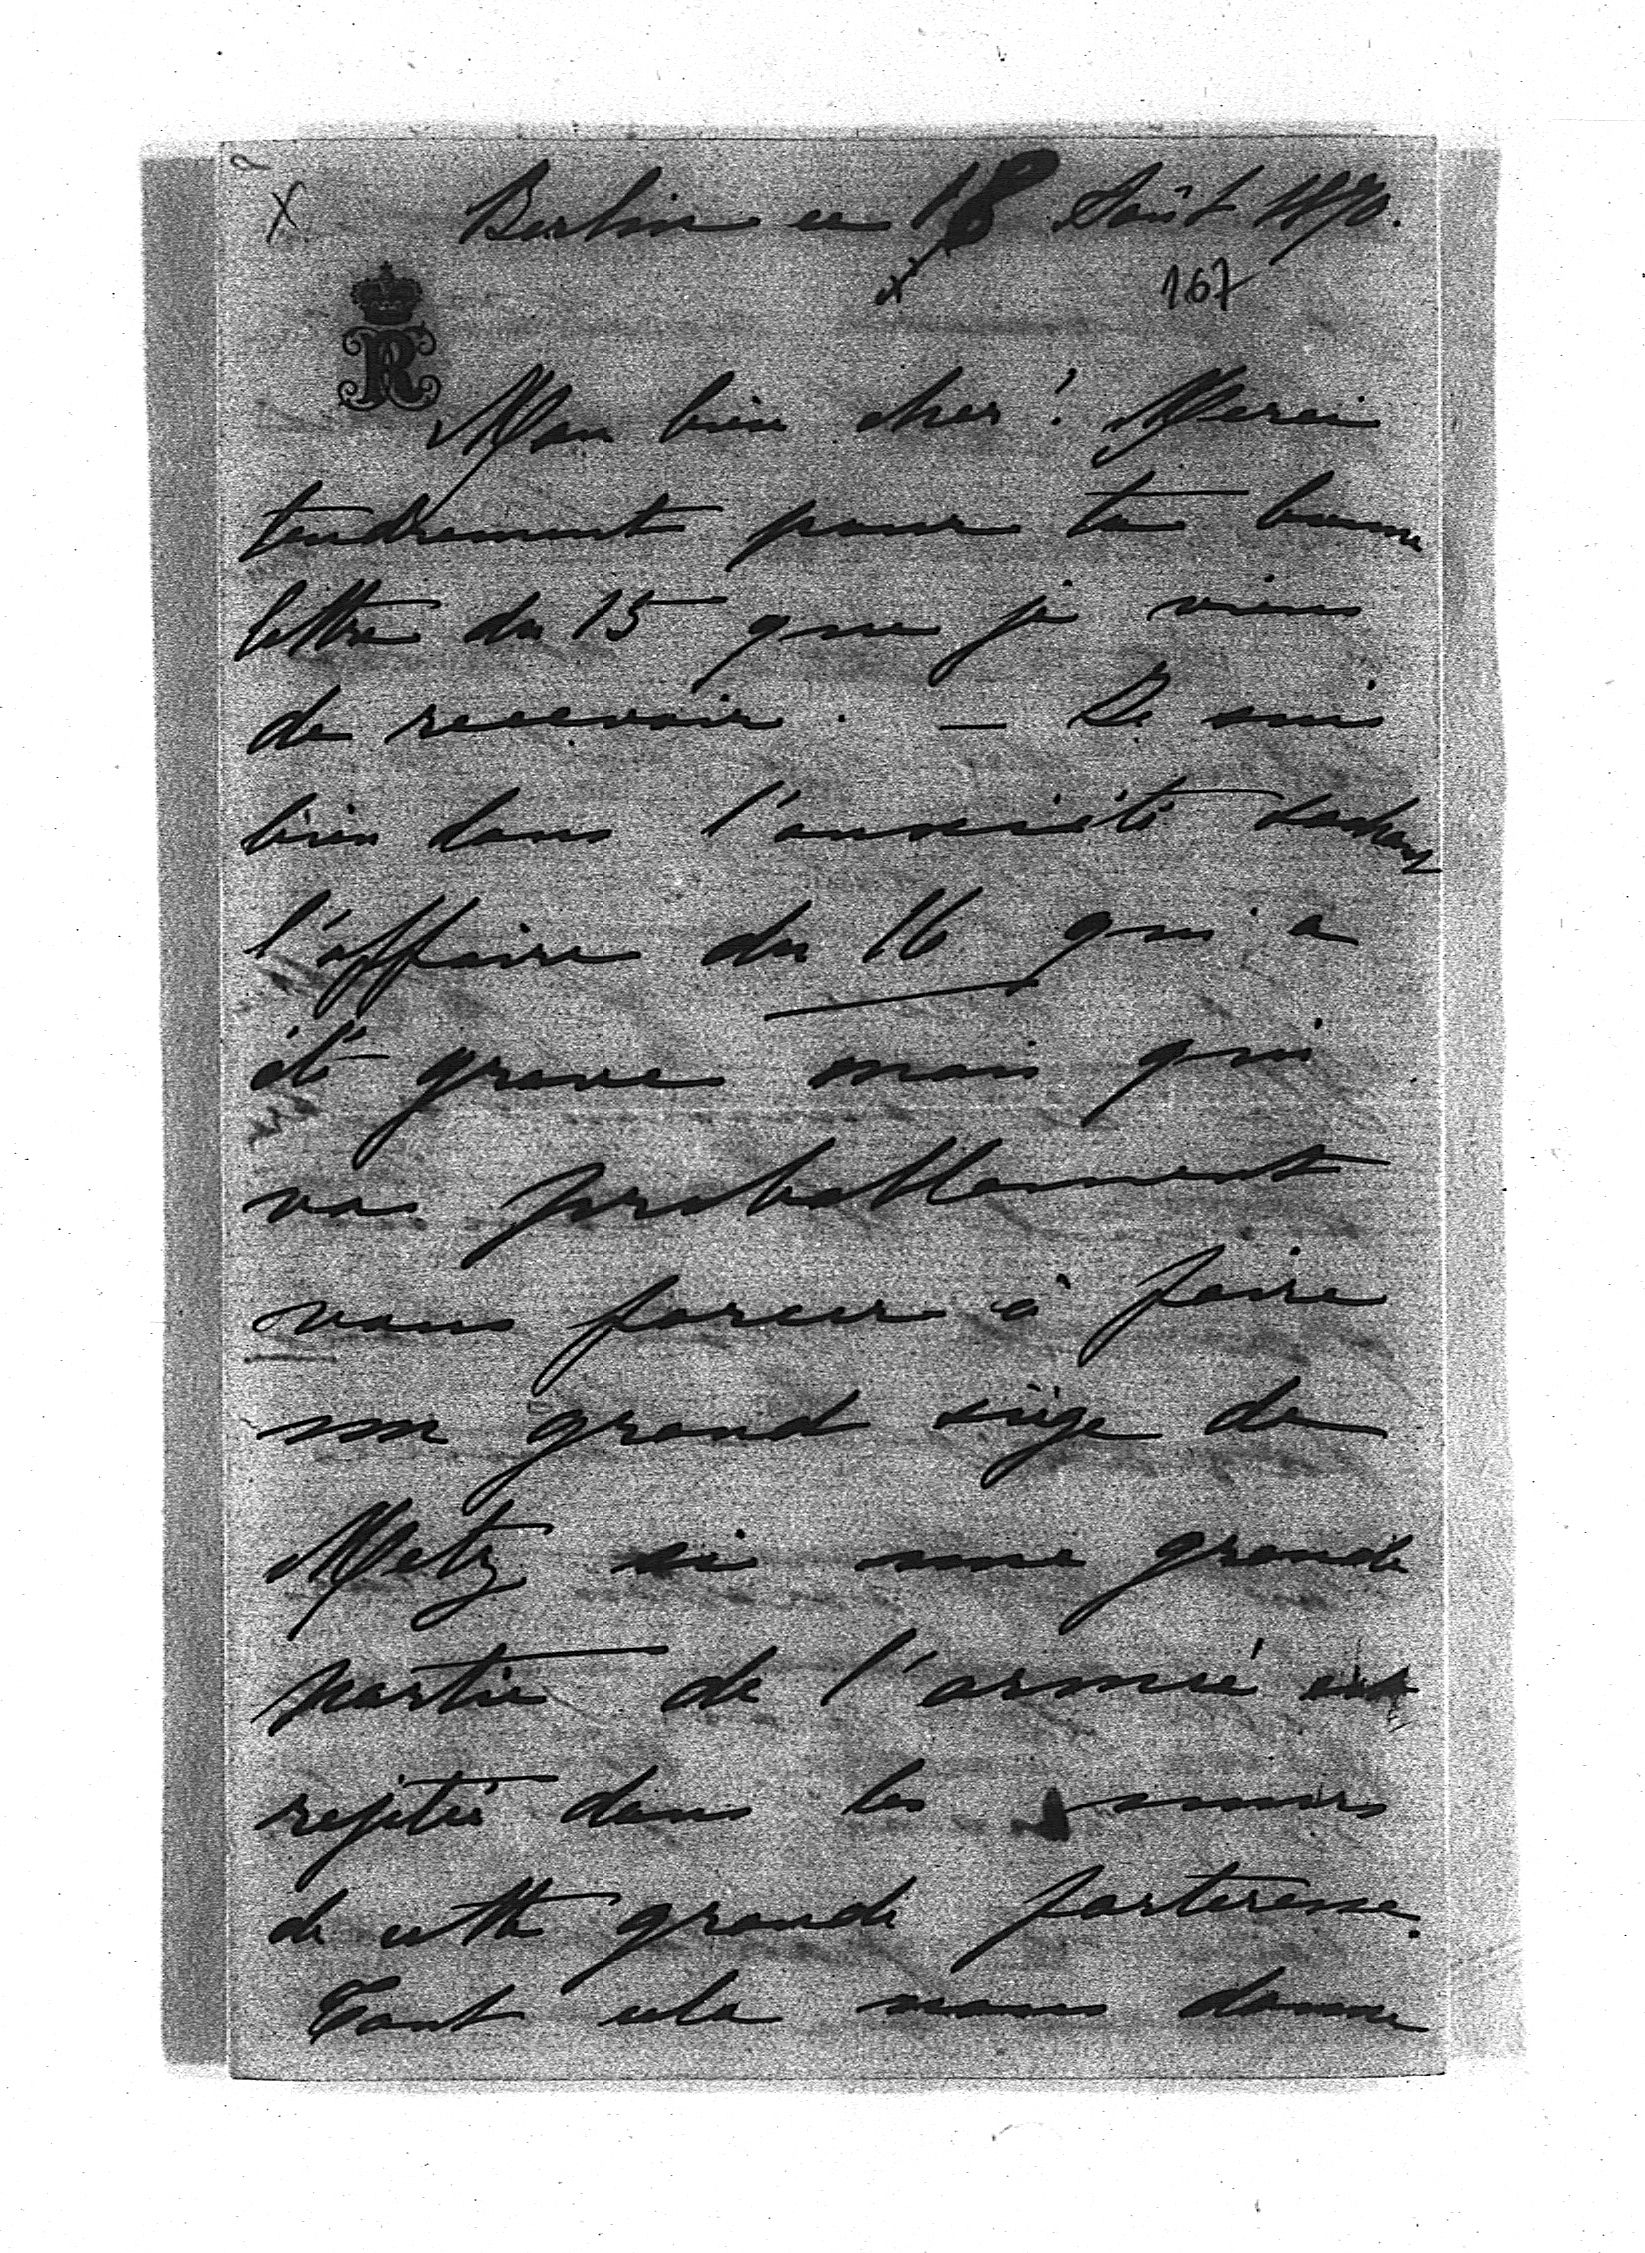 Berlin ce 18 Août 1870.
167
Mon bien cher! Merci
tendrement pour ta bonne
lettre du 15 que je viens
de recevoir. — Je suis
bien dans l'anxiété sachant
l'affaire du 16 qui a
été grave mais qui
va probablement
vous forcer à faire
un grand siége de
Metz si une grande
partie de l'armée est
rejetée dans les murs
de cette grande forteresse.
Tout cela nous donne